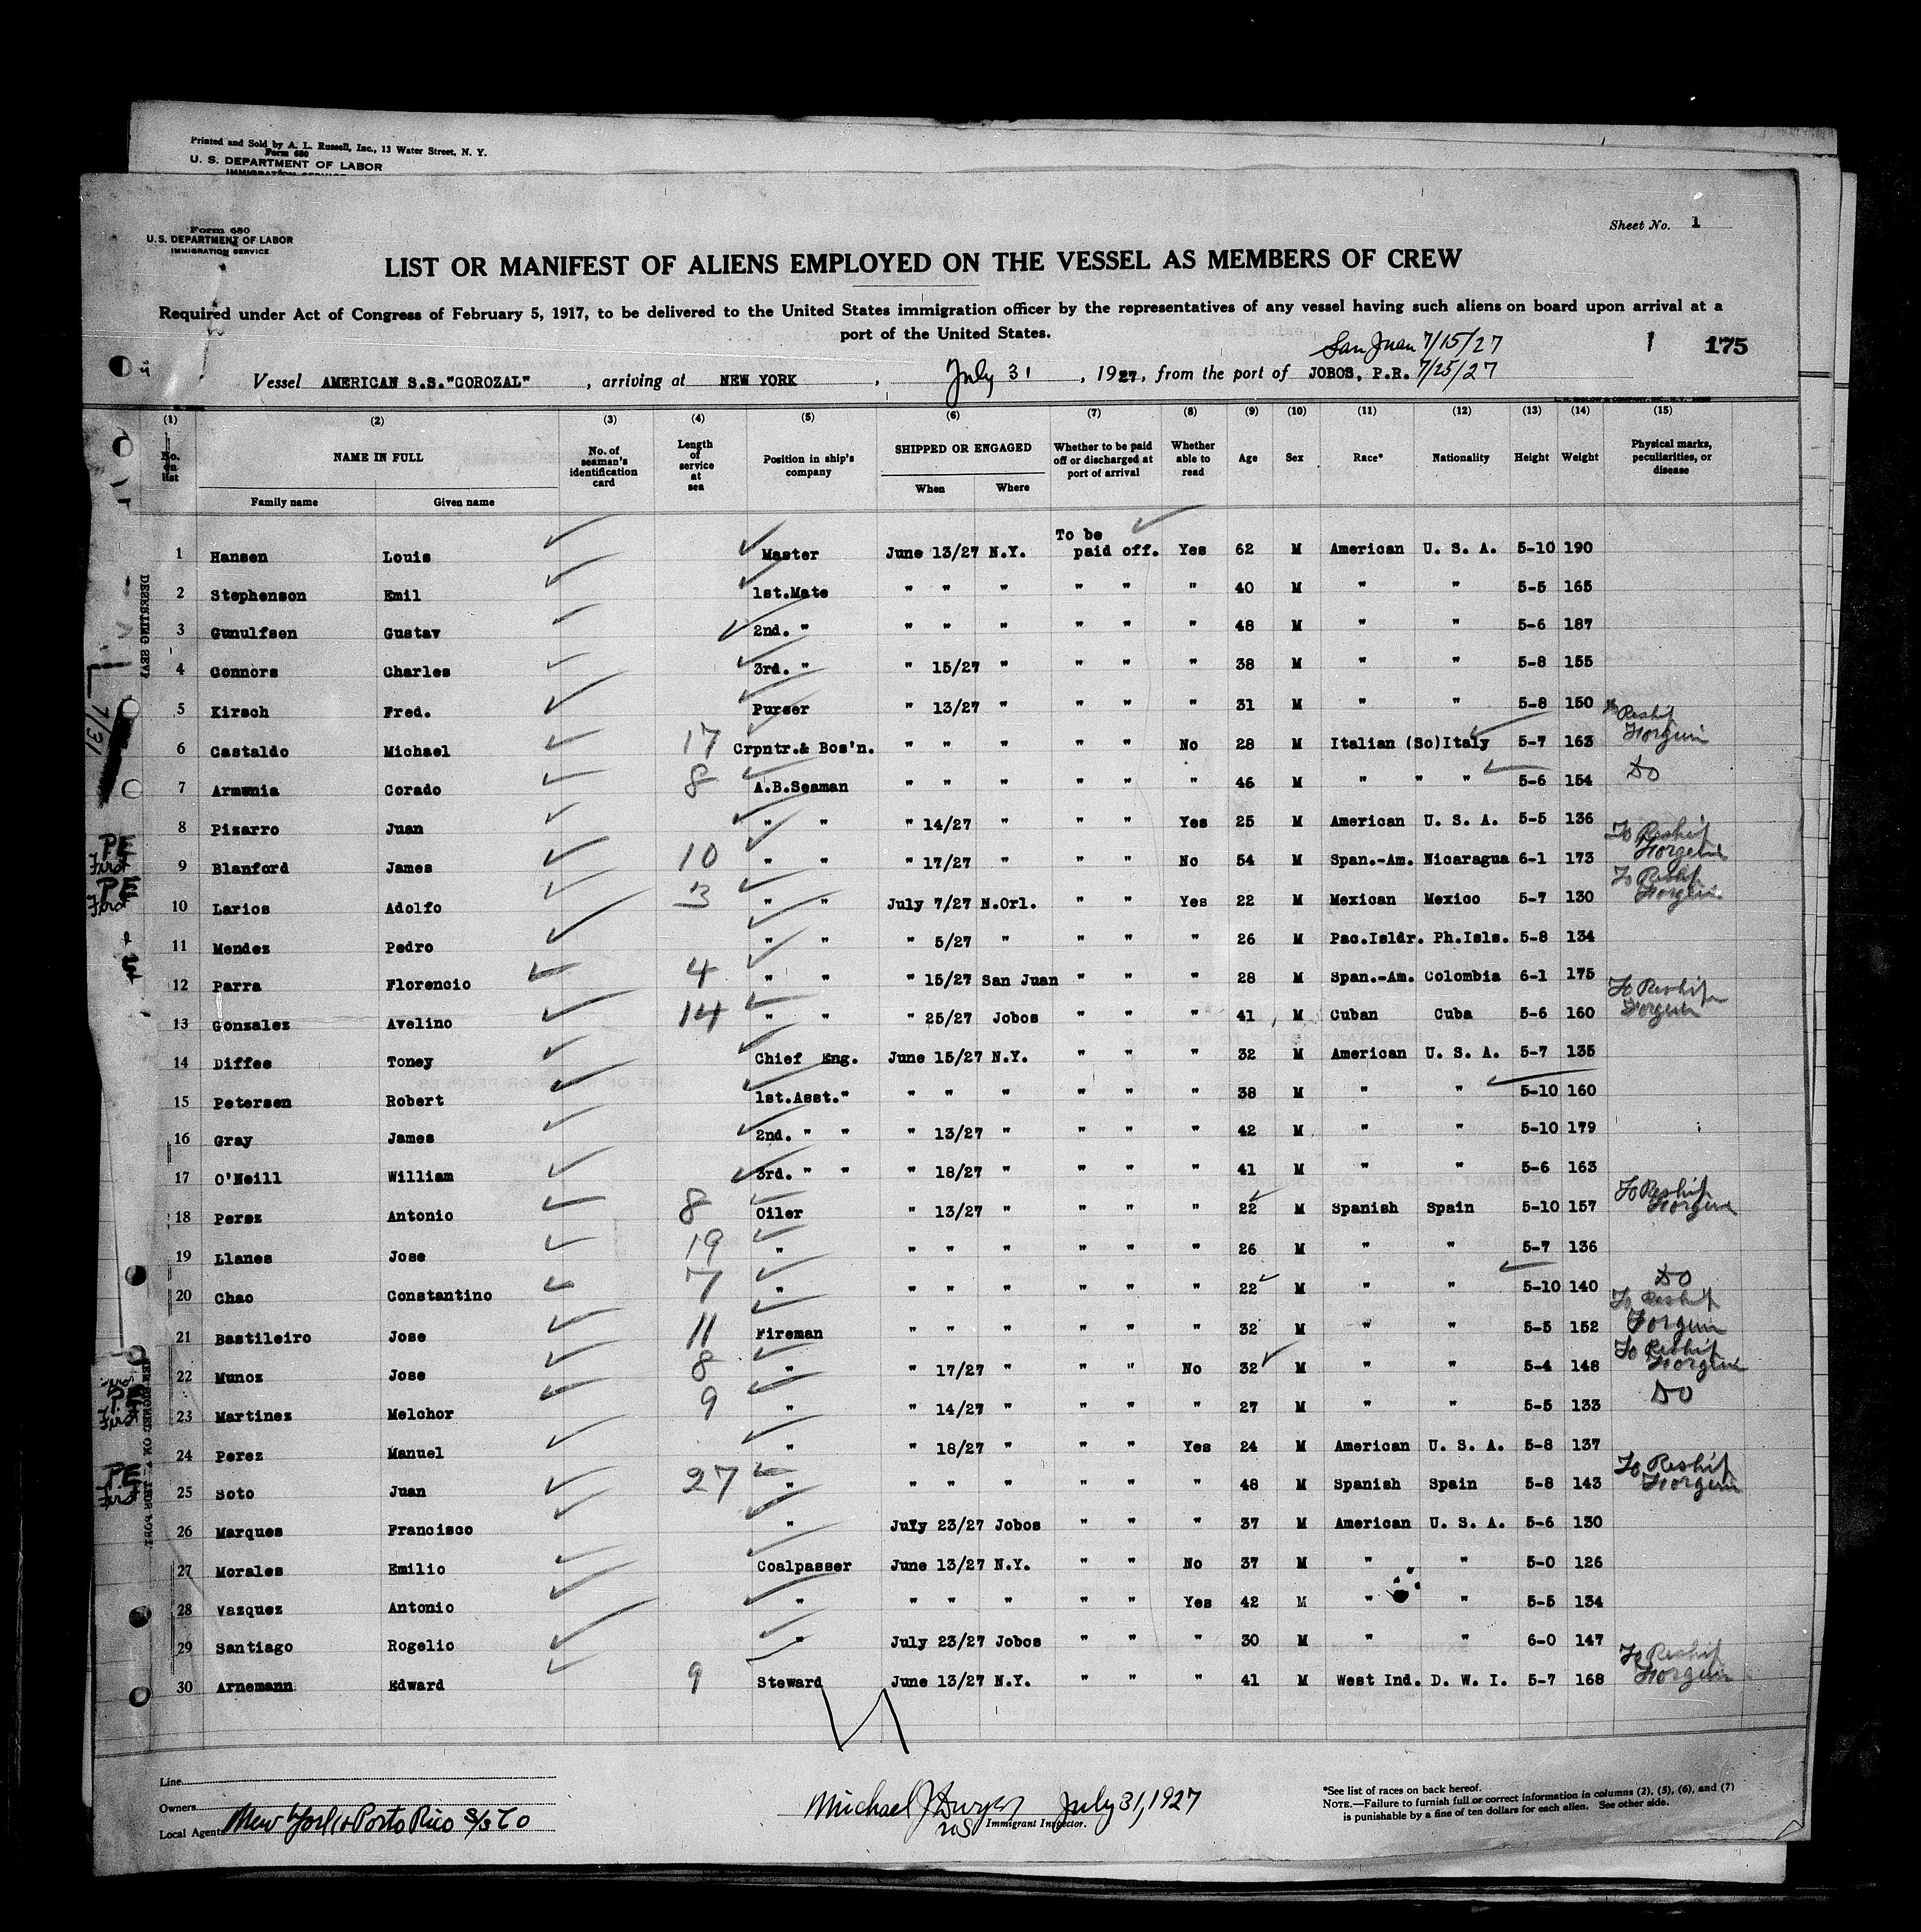 Printed and Sold by A. L. Russell, Inc., 13 Water Street, N. Y.
Form 680
U. S. DEPARTMENT OF LABOR
IMMIGRATION SERVICE
Form 680
U. S. DEPARTMENT OF LABOR
IMMIGRATION SERVICE
Sheet No. 1
LIST OR MANIFEST OF ALIENS EMPLOYED ON THE VESSEL AS MEMBERS OF CREW
Required under Act of Congress of February 5, 1917, to be delivered to the United States immigration officer by the representatives of any vessel having such aliens on board upon arrival at a
port of the United States.
San Juan 7/15/27 1 175
Vessel AMERICAN S.S."COROZAL", arriving at NEW YORK, July 31, 1927, from the port of JOBOS, P.R. 7/25/27
(1) (2) (3) (4) (5) (6) (7) (8) (9) (10) (11) (12) (13) (14) (15)
No. on list NAME IN FULL No. of seaman's identification card Length of service at sea Position in ship's company SHIPPED OR ENGAGED Whether to be paid off or discharged at port of arrival Whether able to read Age Sex Race* Nationality Height Weight Physical marks, peculiarities, or disease
Family name Given name When Where
1 Hansen Louis Master June 13/27 N.Y. To be paid off. Yes 62 M American U. S. A. 5-10 190
2 Stephenson Emil 1st.Mate " " " " " " 40 M " " 5-5 165
3 Gunulfsen Gustav 2nd. " " " " " " " 48 M " " 5-6 187
4 Connors Charles 3rd. " " 15/27 " " " " 38 M " " 5-8 155
5 Kirsch Fred. Purser " 13/27 " " " " 31 M " " 5-8 150
6 Castaldo Michael 17 Crpntr.& Bos'n. " " " " " No 28 M Italian (So)Italy 5-7 163 Reship Horguin
7 Armenia Corado 8 A.B.Seaman " " " " " " 46 M " " " 5-6 154 DO
8 Pizarro Juan " " " 14/27 " " " Yes 25 M American U. S. A. 5-5 136
9 Blanford James 10 " " " 17/27 " " " No 54 M Span.-Am. Nicaragua 6-1 173 To Reship Horguin
10 Larios Adolfo 3 " " July 7/27 N.Orl. " " Yes 22 M Mexican Mexico 5-7 130 To Reship Horguin
11 Mendez Pedro " " " 5/27 " " " " 26 M Pac.Isldr. Ph.Isls. 5-8 134
12 Parra Florencio 4 " " " 15/27 San Juan " " " 28 M Span.-Am. Colombia 6-1 175
13 Gonzalez Avelino 14 " " " 25/27 Jobos " " " 41 M Cuban Cuba 5-6 160 To Reship Horguin
14 Diffes Toney Chief Eng. June 15/27 N.Y. " " " 32 M American U. S. A. 5-7 135
15 Petersen Robert 1st.Asst." " " " " " " 38 M " " 5-10 160
16 Gray James 2nd. " " " 13/27 " " " " 42 M " " 5-10 179
17 O'Neill William 3rd. " " " 18/27 " " " " 41 M " " 5-6 163
18 Perez Antonio 8 Oiler " 13/27 " " " " 22 M Spanish Spain 5-10 157 To Reship Horguin
19 Llanes Jose 19 " " " " " " " 26 M " " 5-7 136
20 Chao Constantino 7 " " " " " " " 22 M " " 5-10 140 DO
21 Bastileiro Jose 11 Fireman " " " " " " 32 M " " 5-5 152 To Reship Horguin
22 Munoz Jose 8 " " 17/27 " " " No 32 M " " 5-4 148 To Reship Horguin
23 Martinez Melchor 9 " " 14/27 " " " " 27 M " " 5-5 133 DO
24 Perez Manuel " " 18/27 " " " Yes 24 M American U. S. A. 5-8 137
25 Soto Juan 27 " " " " " " " 48 M Spanish Spain 5-8 143 To Reship Horguin
26 Marques Francisco " July 23/27 Jobos " " " 37 M American U. S. A. 5-6 130
27 Morales Emilio Coalpasser June 13/27 N.Y. " " No 37 M " " 5-0 126
28 Vazquez Antonio " " " " " " Yes 42 M " " 5-5 134
29 Santiago Rogelio " July 23/27 Jobos " " " 30 M " " 6-0 147
30 Arnemann Edward 9 Steward June 13/27 N.Y. " " " 41 M West Ind. D. W. I. 5-7 168 To Reship Horguin
7/31
PE
First
PE
First
PE
First
PE
First
Line
Owners
Local Agents New York & Porto Rico S/S Co
Michael J Dwyer July 31, 1927
Immigrant Inspector.
*See list of races on back hereof.
NOTE.—Failure to furnish full or correct information in columns (2), (5), (6), and (7)
is punishable by a fine of ten dollars for each alien. See other side.